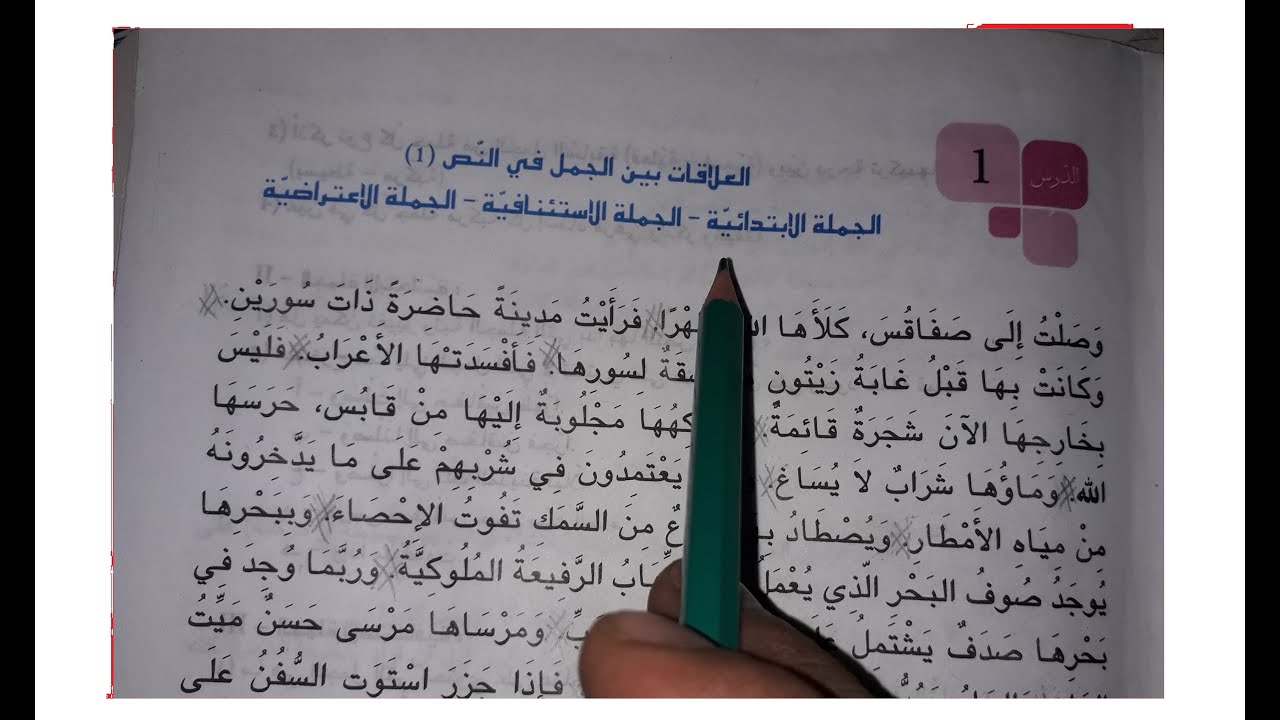 الدّرس
1
العلاقات بين الجمل في النّص (1)
الجملة الابتدائيّة - الجملة الاستئنافيّة - الجملة الاعتراضيّة
وَصَلْتُ إِلَى صَفَاقُسَ، كَلَأَهَا فَرَأَيْتُ مَدِينَةً حَاضِرَةً ذَاتَ سُورَيْنِ.
وَكَانَتْ بِهَا قَبْلُ غَابَةُ زَيْتُونٍ لِسُورِهَا. فَأَفْسَدَتْهَا الأَعْرَابُ. فَلَيْسَ
بِخَارِجِهَا الآنَ شَجَرَةٌ قَائِمَةٌ. مَجْلُوبَةٌ إِلَيْهَا مِنْ قَابُس، حَرَسَهَا
الله. وَمَاؤُهَا شَرَابٌ لاَ يُسَاغُ. يَعْتَمِدُونَ فِي شُرْبِهِمْ عَلَى مَا يَدَّخِرُونَهُ
مِنْ مِيَاهِ الأَمْطَارِ. وَيُصْطَادُ مِنَ السَّمَكِ تَفُوتُ الإِحْصَاءَ. وَبِبَحْرِهَا
يُوجَدُ صُوفُ البَحْرِ الّذِي يُعْمَلُ الرَّفِيعَةُ المُلُوكِيَّةُ. وَرُبَّمَا وُجِدَ فِي
بَحْرِهَا صَدَفٌ يَشْتَمِلُ وَمَرْسَاهَا مَرْسَى حَسَنٌ مَيِّتُ
فَإِذَا جَزَرَ اسْتَوَت السُّفُنُ عَلَى